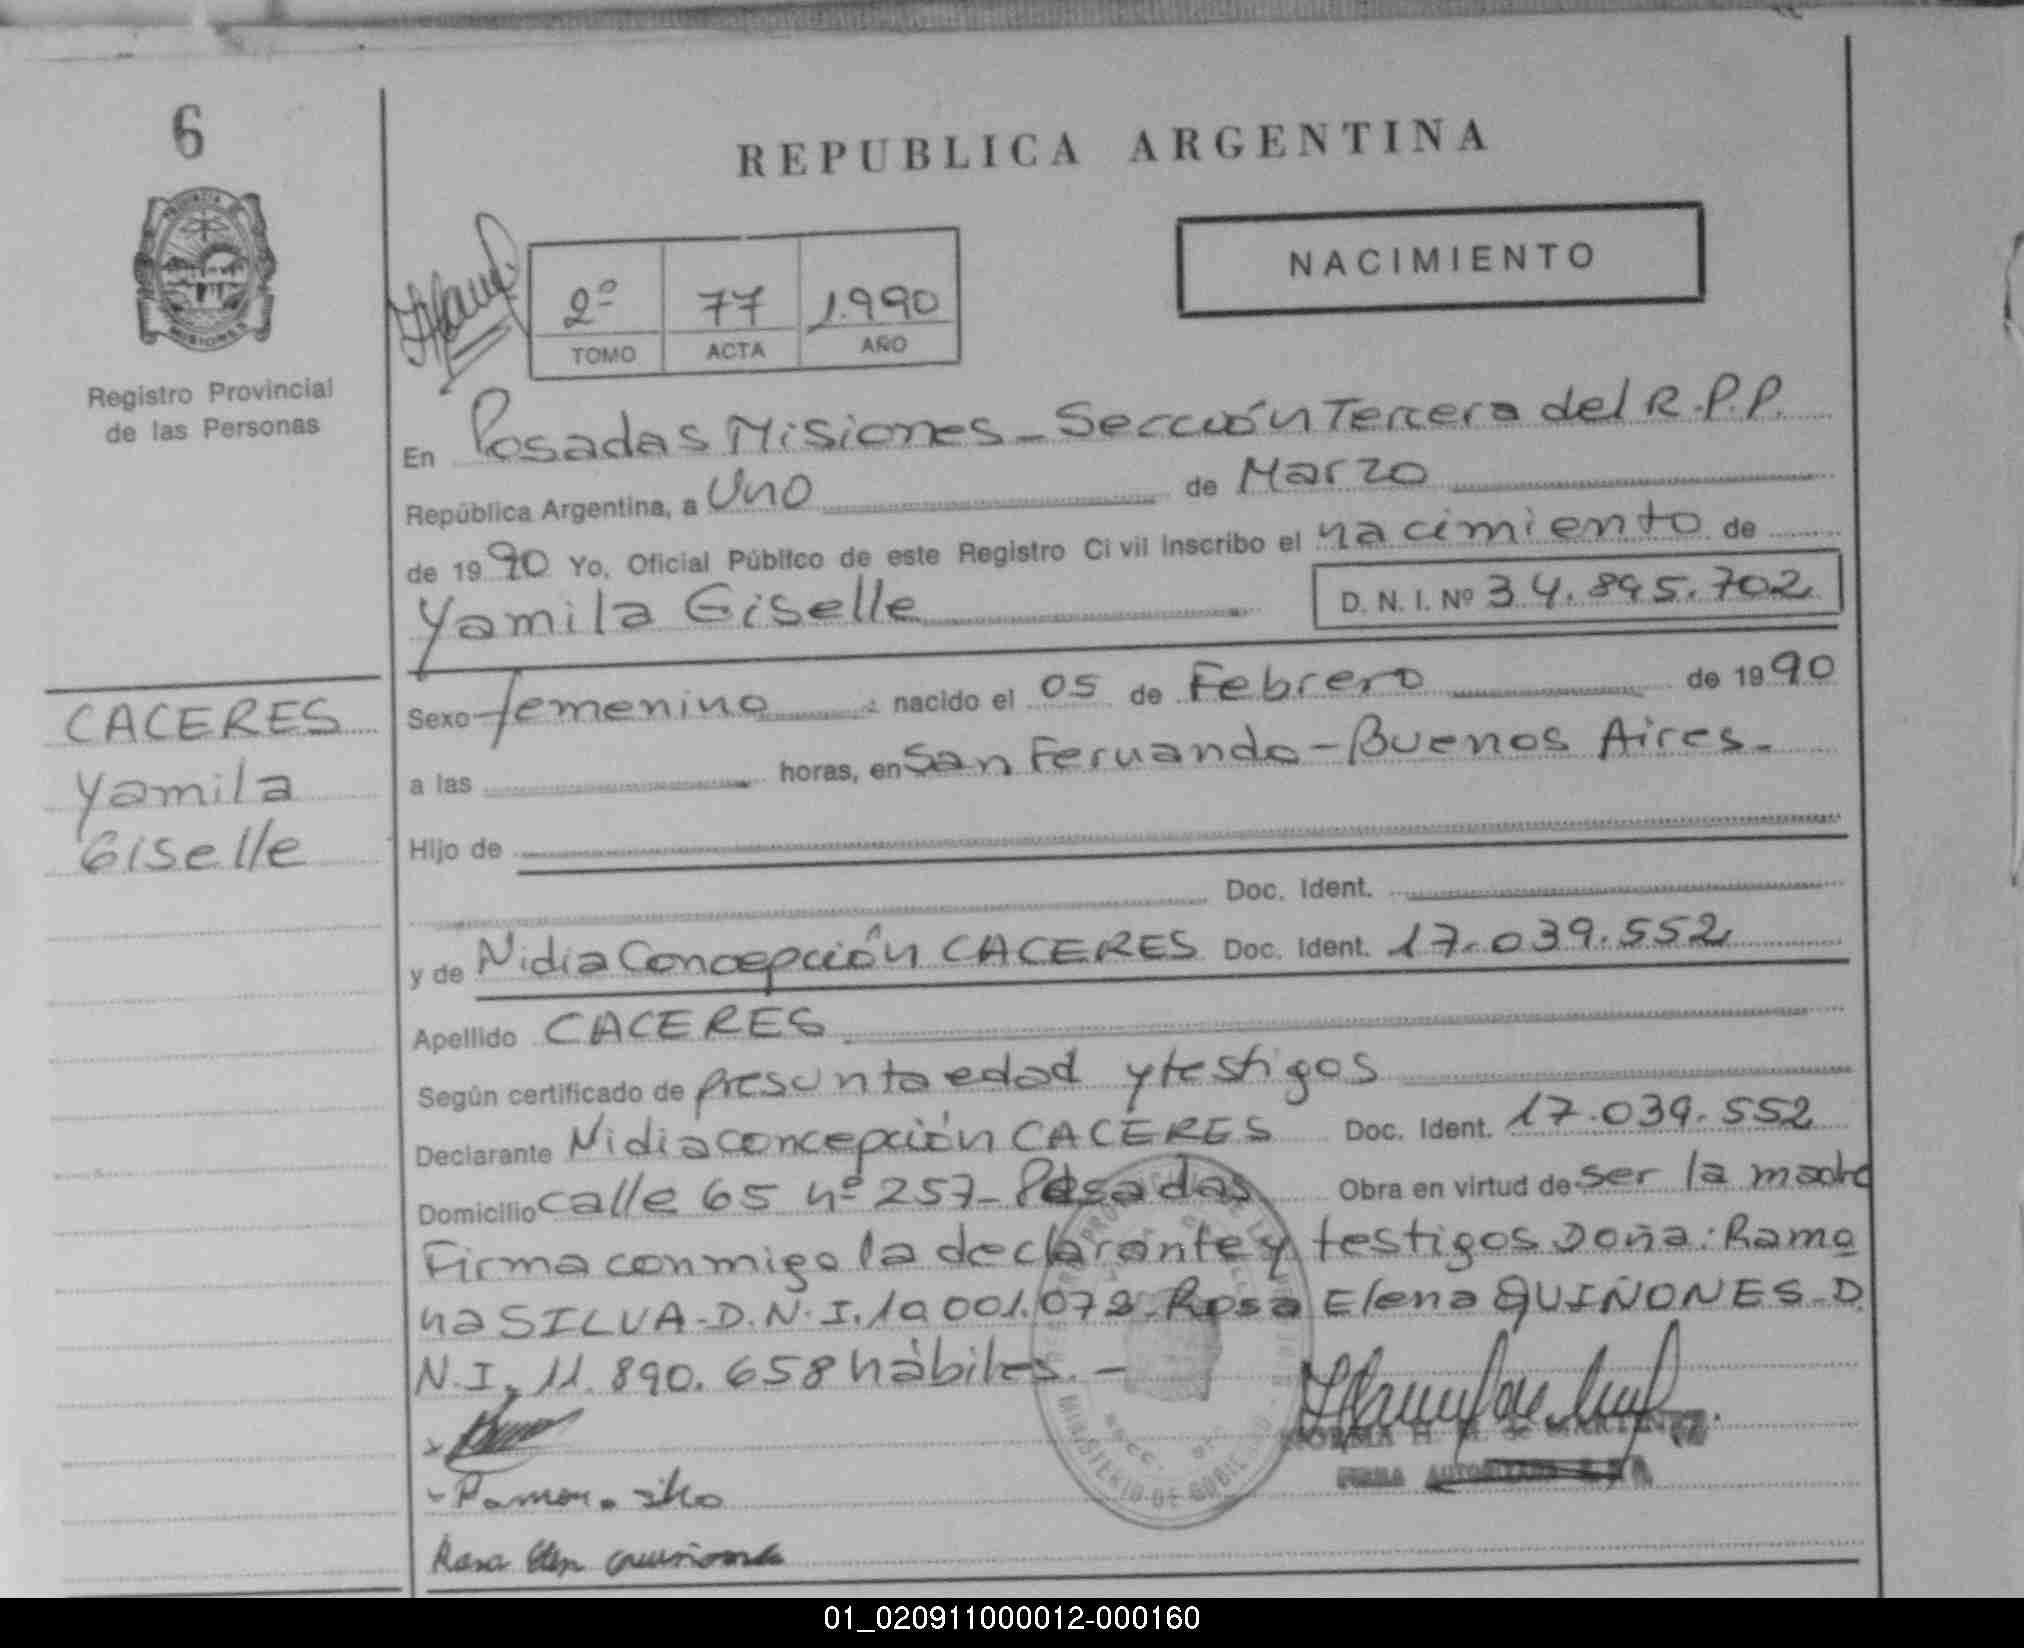 6
REPUBLICA ARGENTINA
NACIMIENTO
2º 77 1.990
TOMO ACTA AÑO
Registro Provincial
de las Personas
En Posadas Misiones - Sección Tercera del R.P.P.
República Argentina, a Uno de Marzo
de 1990 Yo, Oficial Público de este Registro Civil inscribo el nacimiento de
Yamila Giselle D. N. I. Nº 34.895.702
CACERES
Yamila
Giselle
Sexo femenino nacido el 05 de Febrero de 1990
a las horas, en San Fernando - Buenos Aires.
Hijo de
Doc. Ident.
y de Nidia Concepción CACERES Doc. Ident. 17.039.552
Apellido CACERES
Según certificado de presunta edad y testigos
Declarante Nidia concepción CACERES Doc. Ident. 17.039.552
Domicilio calle 65 nº 257 - Posadas Obra en virtud de ser la madre
Firma conmigo la declarante y testigos Doña: Ramo
na SILVA - D.N.I. 10.001.072 - Rosa Elena QUIÑONES - D.
N.I. 11.890.658 hábiles. -
MINISTERIO DE GOBIERNO
NORMA H. M. de MARTINEZ
FIRMA AUTORIZADA
Rosa Elen quiñones
01_020911000012-000160